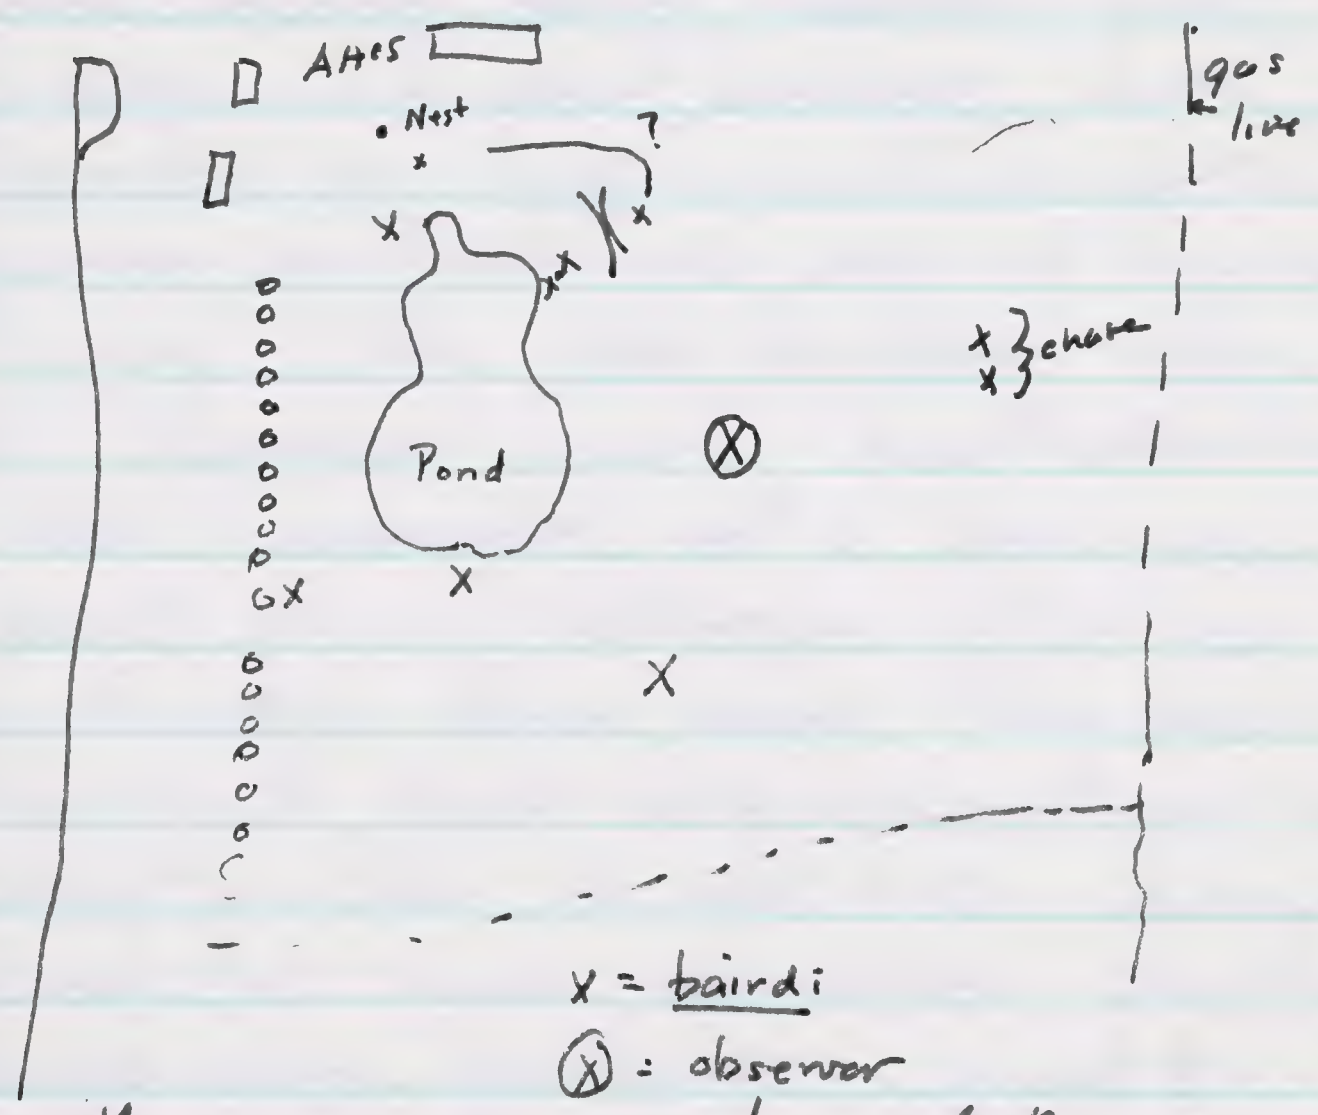 Attes
gas
line
Nest
?
X
X
X
X
X
X } chase
X
Ⓧ
Pond
X
X
X
X = bairdi
Ⓧ = observer